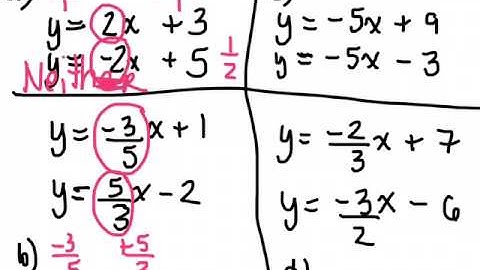 y = 2x + 3
y = -2x + 5 1/2
Neither
y = -5x + 9
y = -5x - 3
y = -3/5 x + 1
y = 5/3 x - 2
b) -3/5 +5/3
y = -2/3 x + 7
y = -3/2 x - 6
d)